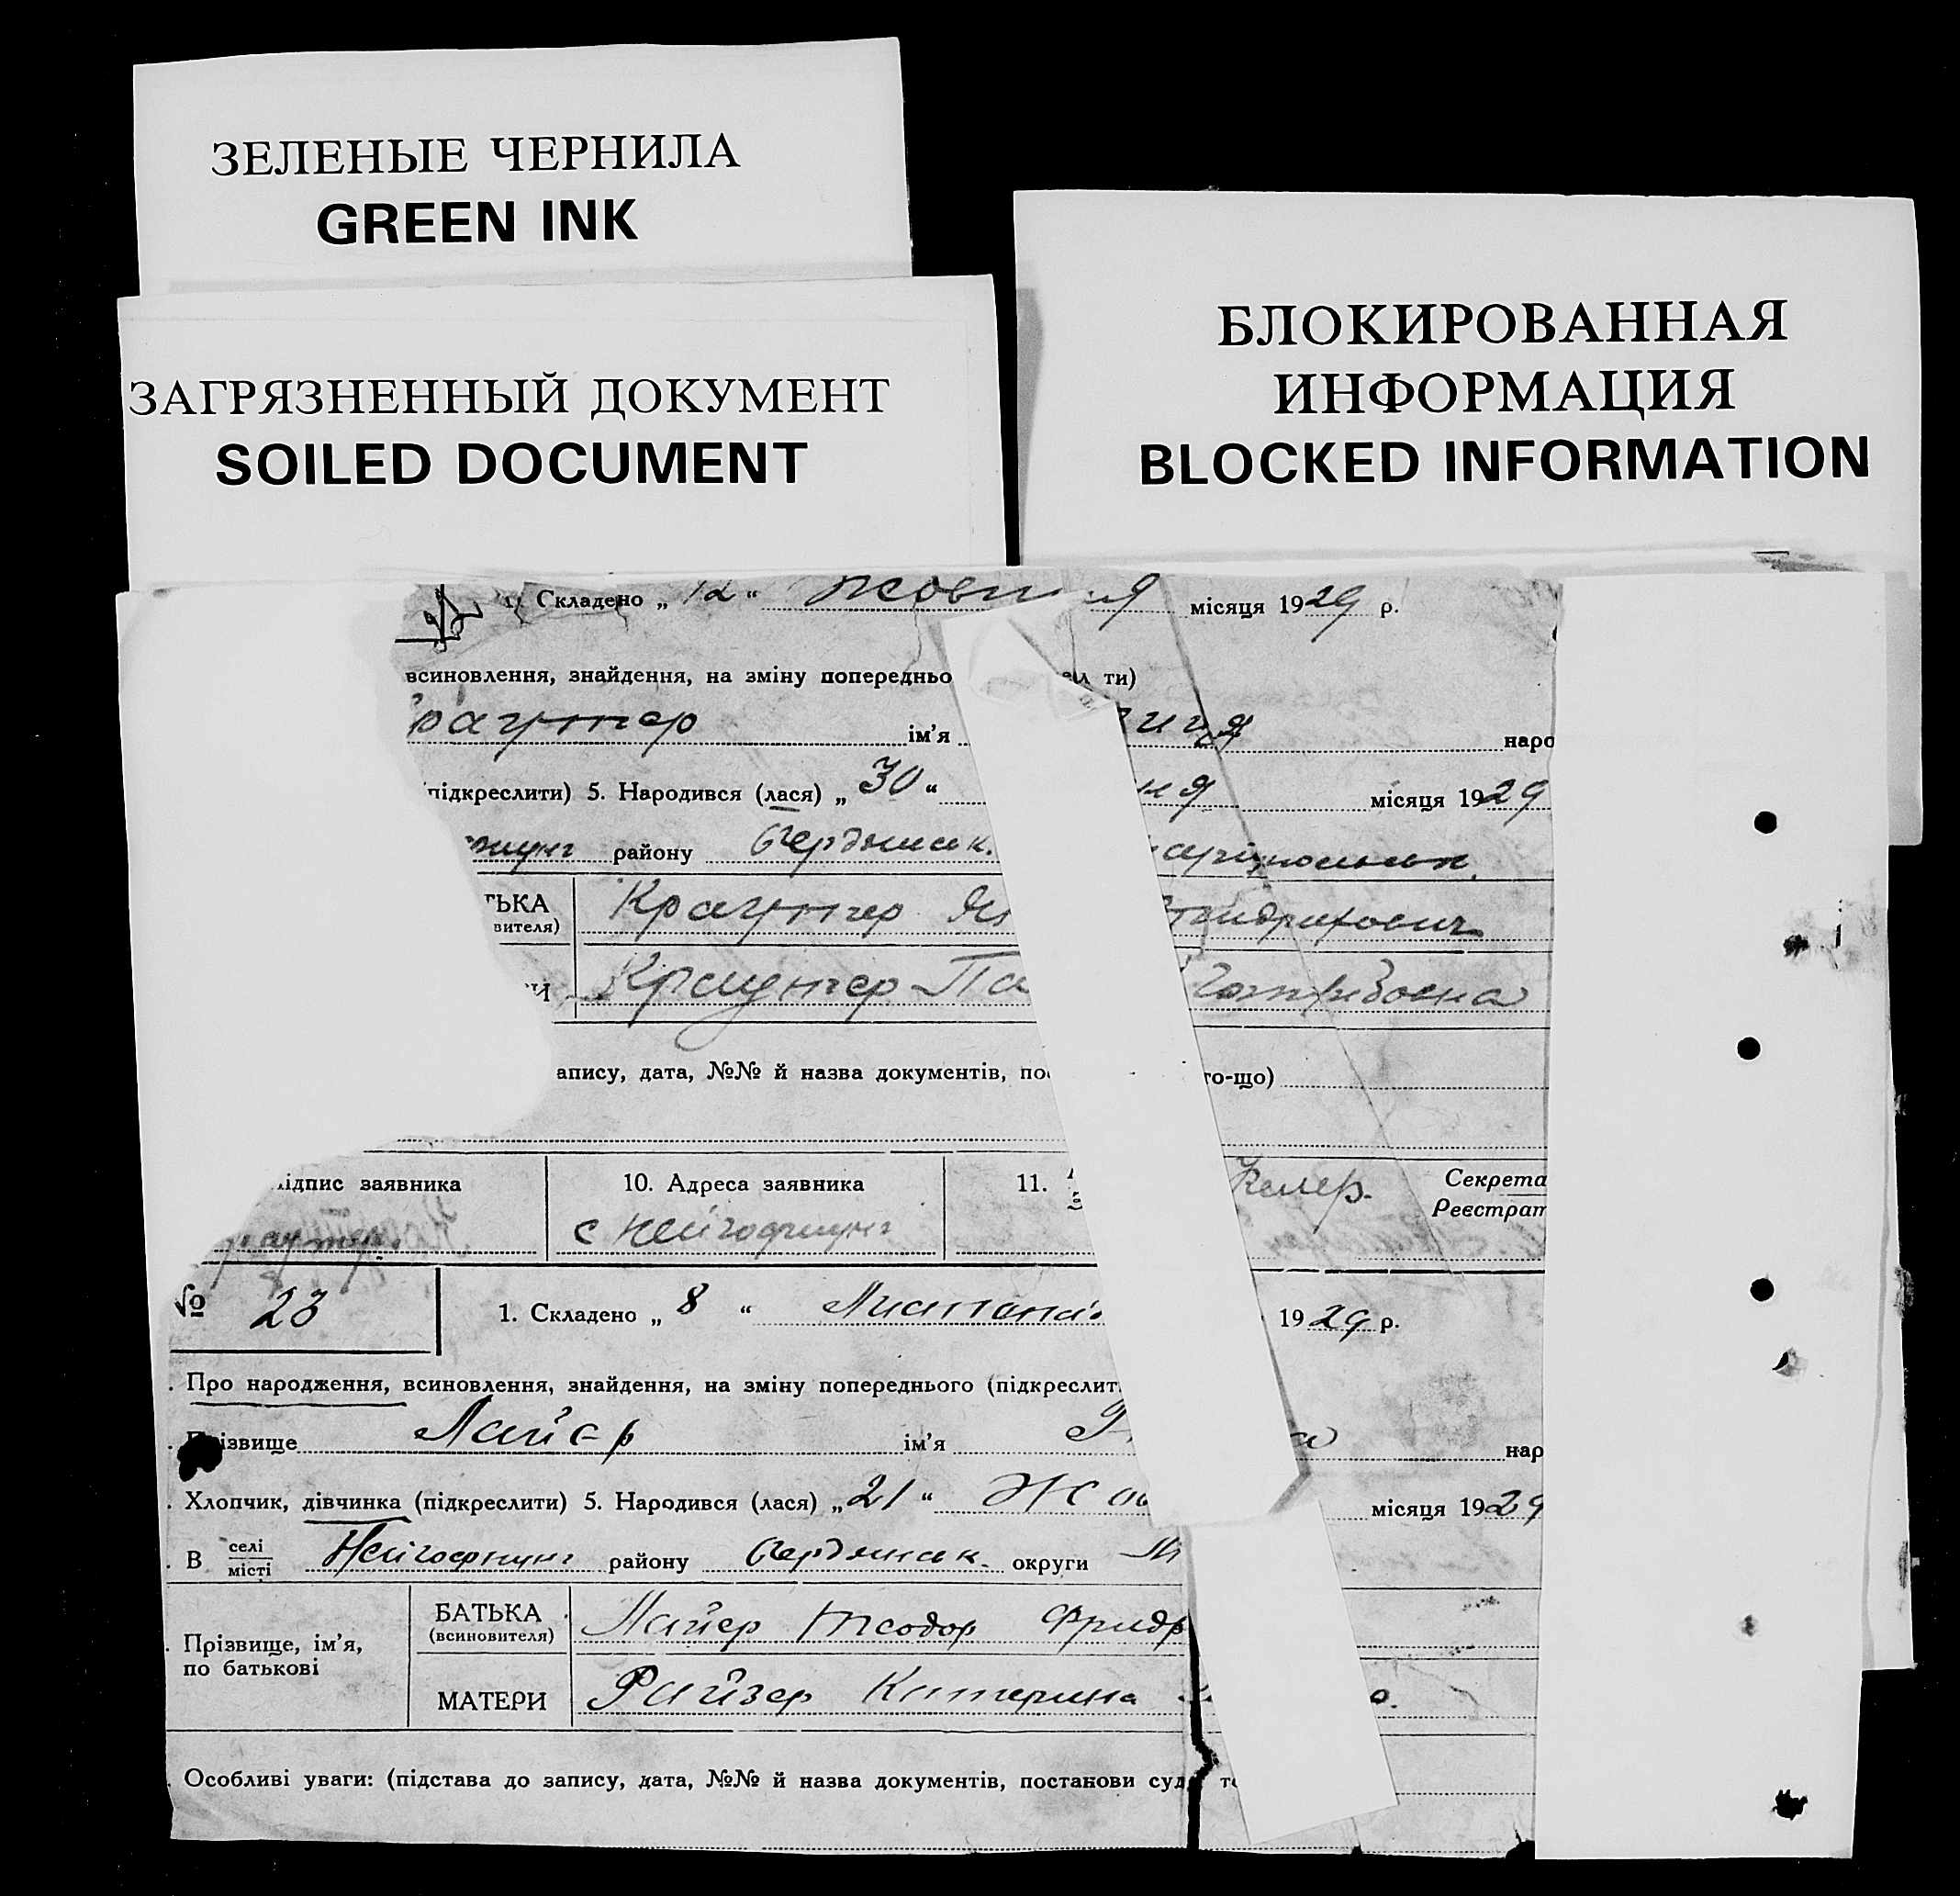 ЗЕЛЕНЫЕ ЧЕРНИЛА
GREEN INK
ЗАГРЯЗНЕННЫЙ ДОКУМЕНТ
SOILED DOCUMENT
БЛОКИРОВАННАЯ
ИНФОРМАЦИЯ
BLOCKED INFORMATION
Складено „ 12 “ місяця 1929 р.
всиновлення, знайдення, на зміну попередньо ти)
раутер ім’я наро
підкреслити) 5. Народився (лася) „ 30 “ ня місяця 1929
району Бердянськ.
ТЬКА Краутер
вителя)
И Краутер
апису, дата, №№ й назва документів, по то-що)
ідпис заявника 10. Адреса заявника 11. Келер. Секрета
Реєстрат
раутер. с Нейгофнунг
№ 23 1. Складено „ 8 “ Листопад 1929 р.
. Про народження, всиновлення, знайдення, на зміну попереднього (підкреслит
ізвище Майєр ім’я а нар
. Хлопчик, дівчинка (підкреслити) 5. Народився (лася) „ 21 “ Жов місяця 1929
. В селі
місті Нейгофнунг району Бердянськ. округи М
БАТЬКА Майер Теодор Фридр
(всиновителя)
. Прізвище, ім’я,
по батькові
МАТЕРИ Райзер Катерина
. Особливі уваги: (підстава до запису, дата, №№ й назва документів, постанови суд т